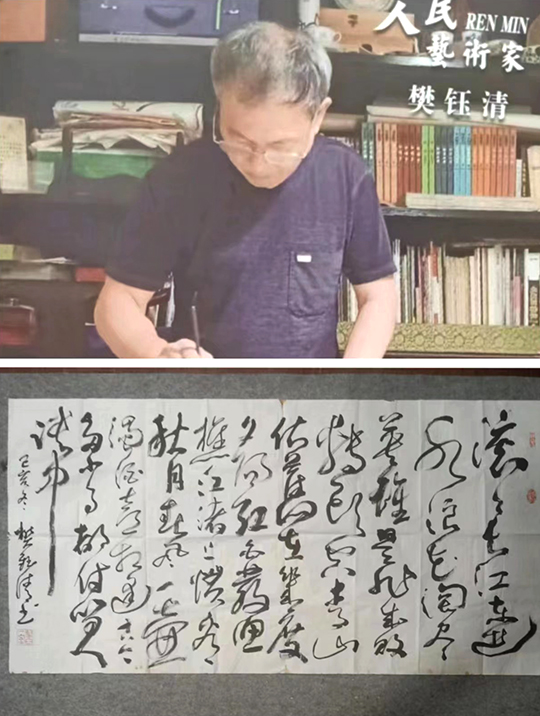 人民 REN MIN
藝術家
樊钰清
滚々长江东逝
水浪花淘尽
英雄是非成败
转头空青山
依旧在几度
夕阳红白发渔
樵江渚上惯看
秋月春风一壶
浊酒喜相逢古今
多少事都付笑
谈中
己亥冬 樊钰清书